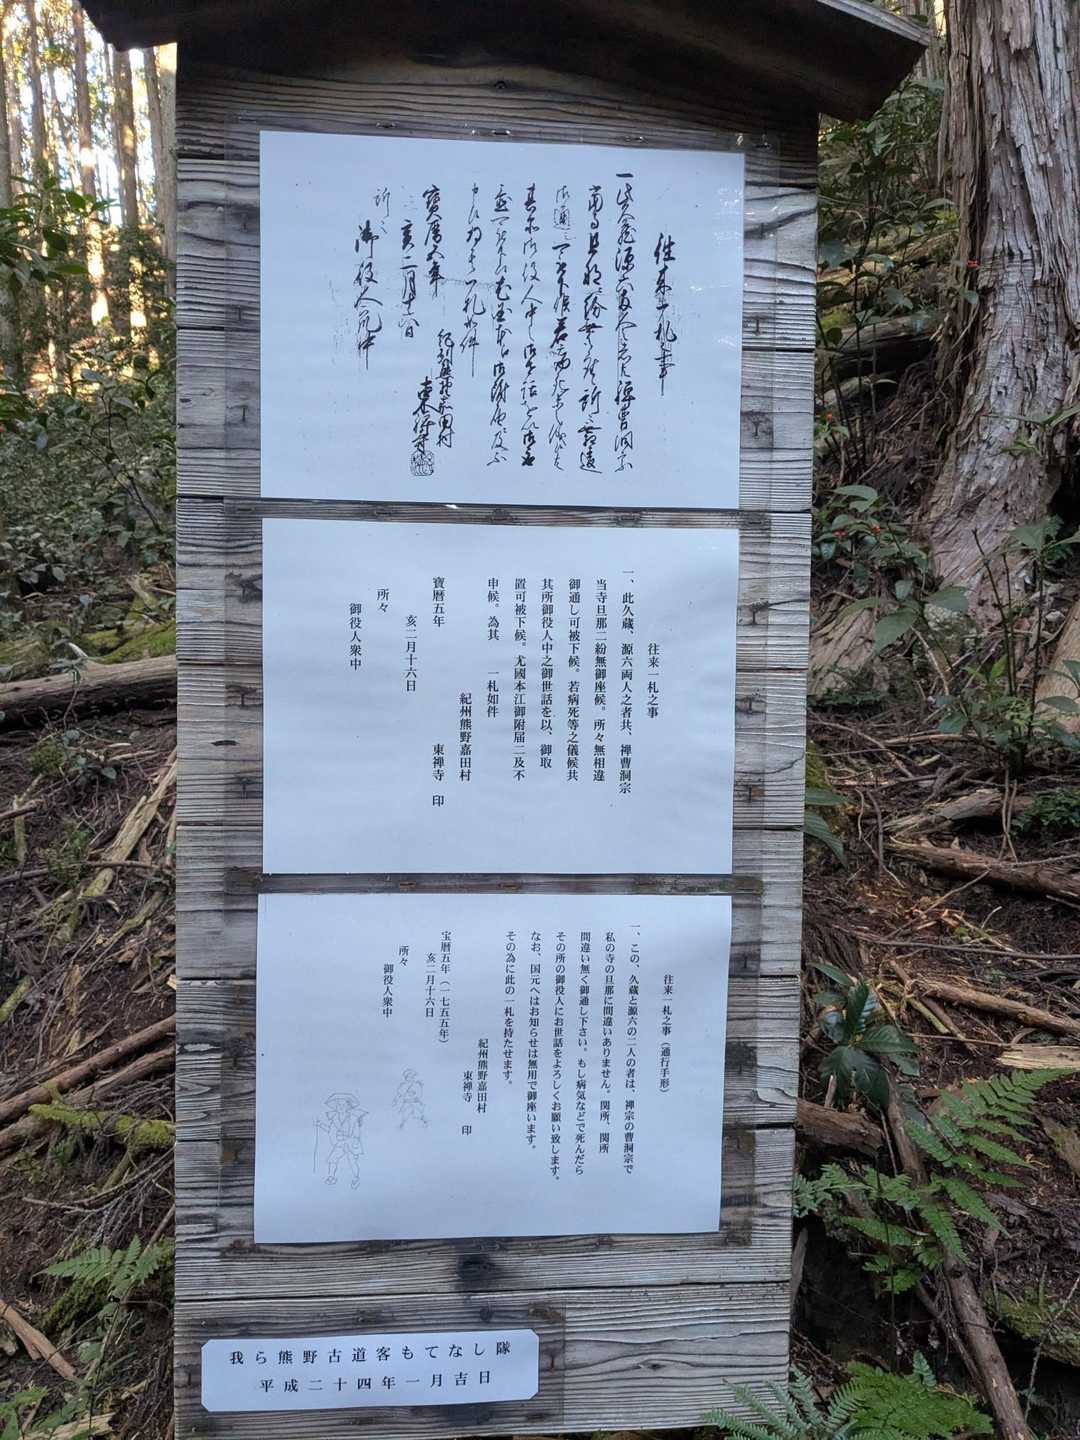 往来一札之事
寶暦五年
亥二月十六日
紀州熊野嘉田村
東禅寺
所々
御役人衆中
往来一札之事
一、此久蔵、源六両人之者共、禅曹洞宗
当寺旦那二紛無御座候。所々無相違
御通し可被下候。若病死等之儀候共
其所御役人中之御世話を以、御取
置可被下候。尤國本江御附届二及不
申候。為其 一札如件
紀州熊野嘉田村
東禅寺 印
寶暦五年
亥二月十六日
所々
御役人衆中
往来一札之事(通行手形)
一、この、久蔵と源六の二人の者は、禅宗の曹洞宗で
私の寺の旦那に間違いありません。関所、関所
間違い無く御通し下さい。もし病気などで死んだら
その所の御役人にお世話をよろしくお願い致します。
なお、国元へはお知らせは無用で御座います。
その為に此の一札を持たせます。
紀州熊野嘉田村
東禅寺 印
宝暦五年(一七五五年)
亥二月十六日
所々
御役人衆中
我ら熊野古道客もてなし隊
平成二十四年一月吉日